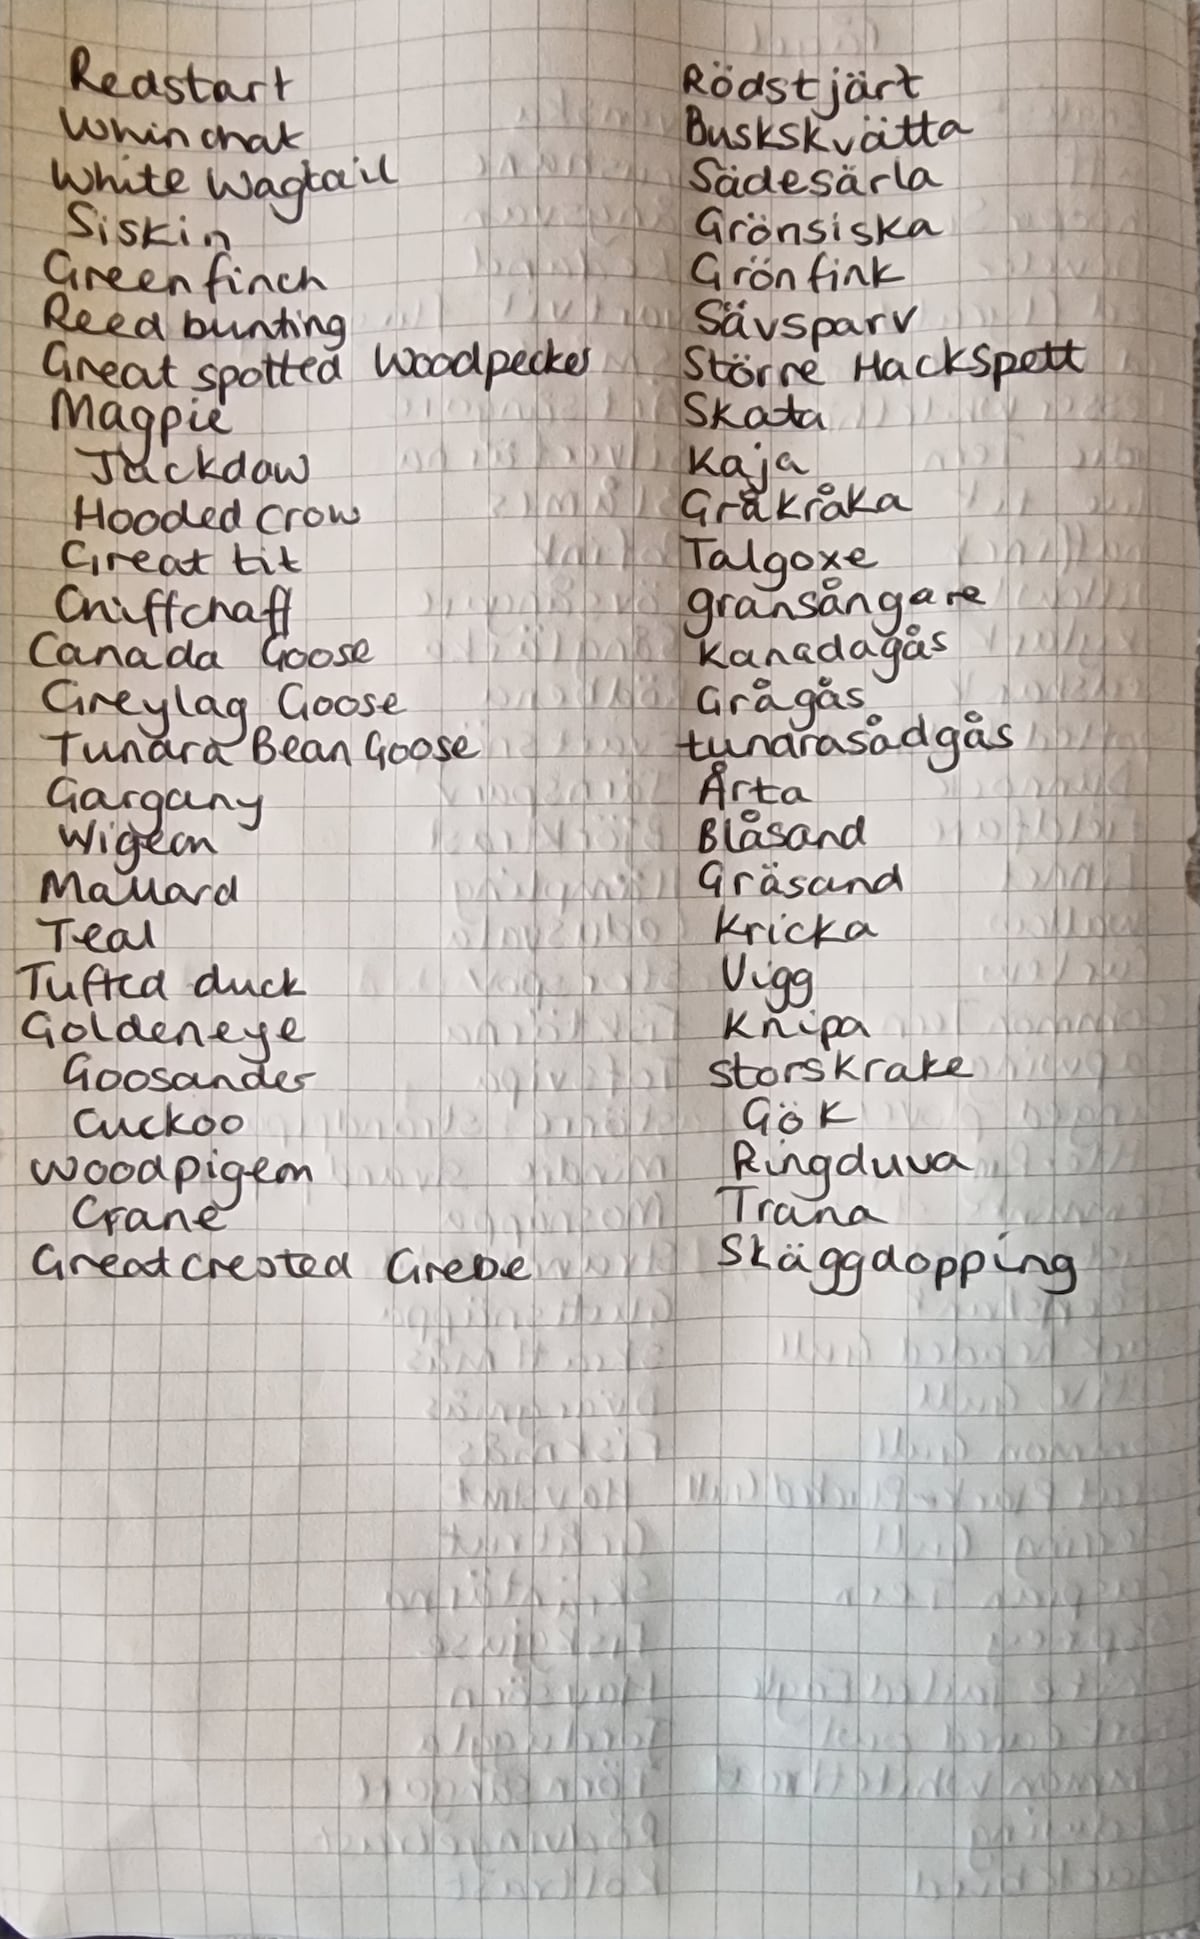 Redstart Rödstjärt
Whinchat Buskskvätta
White Wagtail Sädesärla
Siskin Grönsiska
Greenfinch Grönfink
Reed bunting Sävsparv
Great spotted Woodpecker Större Hackspett
Magpie Skata
Jackdaw Kaja
Hooded Crow Gråkråka
Great tit Talgoxe
Chiffchaff gransångare
Canada Goose Kanadagås
Greylag Goose Grågås
Tundra Bean Goose tundrasådgås
Gargany Årta
Wigeon Blåsand
Mallard Gräsand
Teal Kricka
Tufted duck Vigg
Goldeneye Knipa
Goosander storskrake
Cuckoo Gök
Woodpigeon Ringduva
Crane Trana
Great crested Grebe Skäggdopping